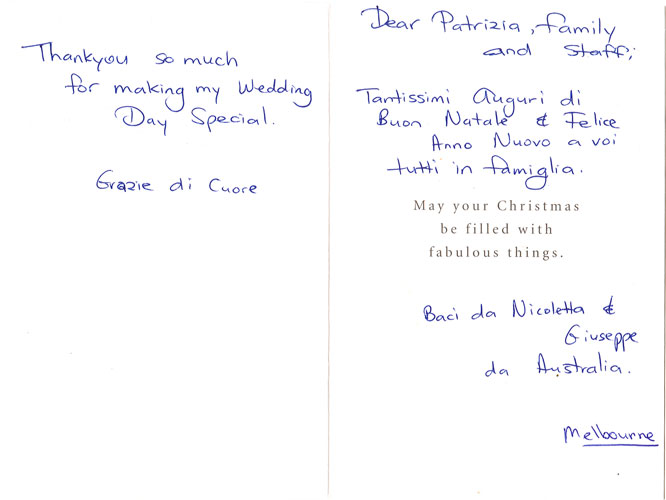 Thankyou so much
for making my Wedding
Day Special.
Grazie di Cuore
Dear Patrizia, family
and Staff;
Tantissimi Auguri di
Buon Natale & Felice
Anno Nuovo a voi
tutti in famiglia.
May your Christmas
be filled with
fabulous things.
Baci da Nicoletta &
Giuseppe
da Australia.
Melbourne